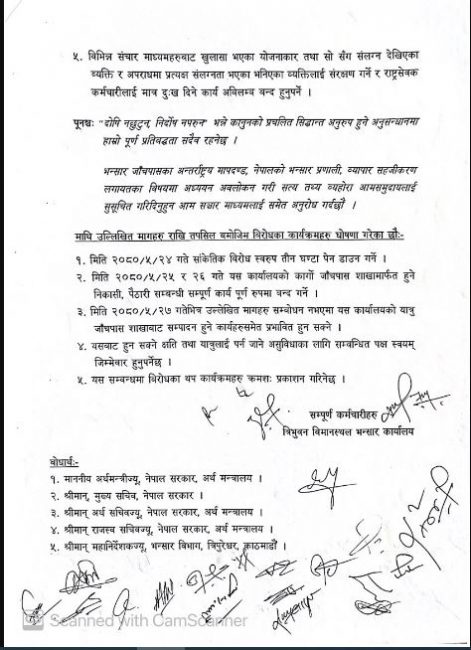 ५. विभिन्न संचार माध्यमहरुबाट खुलासा भएका योजनाकार तथा सो सँग संलग्न देखिएका
व्यक्ति र अपराधमा प्रत्यक्ष संलग्नता भएका भनिएका व्यक्तिलाई संरक्षण गर्ने र राष्ट्रसेवक
कर्मचारीलाई मात्र दुःख दिने कार्य अविलम्ब बन्द हुनुपर्ने ।
पूनश्चः "दोषि नछुटुन्, निर्दोष नपरुन" भन्ने कानुनको प्रचलित सिद्धान्त अनुरुप हुने अनुसन्धानमा
हाम्रो पूर्ण प्रतिवद्धता सदैव रहनेछ ।
भन्सार जाँचपासका अन्तर्राष्ट्रिय मापदण्ड, नेपालको भन्सार प्रणाली, व्यापार सहजीकरण
लगायतका विषयमा अध्ययन अवलोकन गरी सत्य तथ्य व्यहोरा आमसमुदायलाई
सुसूचित गरिदिनुहुन आम सञ्चार माध्यमलाई समेत अनुरोध गर्दछौं ।
माथि उल्लिखित मागहरु राखि तपसिल बमोजिम विरोधका कार्यक्रमहरु घोषणा गरेका छौः-
१. मिति २०८०/५/२४ गते सांकेतिक विरोध स्वरुप तीन घण्टा पेन डाउन गर्ने ।
२. मिति २०८०/५/२५ र २६ गते यस कार्यालयको कार्गो जाँचपास शाखामार्फत हुने
निकासी, पैठारी सम्बन्धी सम्पूर्ण कार्य पूर्ण रुपमा बन्द गर्ने ।
३. मिति २०८०/५/२७ गतेभित्र उल्लेखित मागहरु सम्बोधन नभएमा यस कार्यालयको यात्रु
जाँचपास शाखाबाट सम्पादन हुने कार्यहरुसमेत प्रभावित हुन सक्ने ।
४. यसबाट हुन सक्ने क्षति तथा यात्रुलाई पर्न जाने असुविधाका लागि सम्बन्धित पक्ष स्वयम्
जिम्मेवार हुनुपर्नेछ ।
५. यस सम्बन्धमा विरोधका थप कार्यक्रमहरु क्रमशः प्रकाशन गरिनेछ ।
सम्पूर्ण कर्मचारीहरु
त्रिभुवन विमानस्थल भन्सार कार्यालय
बोधार्थः-
१. माननीय अर्थमन्त्रीज्यू, नेपाल सरकार, अर्थ मन्त्रालय ।
२. श्रीमान्, मुख्य सचिव, नेपाल सरकार ।
३. श्रीमान् अर्थ सचिवज्यू, नेपाल सरकार, अर्थ मन्त्रालय ।
४. श्रीमान् राजस्व सचिवज्यू, नेपाल सरकार, अर्थ मन्त्रालय ।
५. श्रीमान् महानिर्देशकज्यू, भन्सार विभाग, त्रिपुरेश्वर, काठमाडौं ।
Scanned with CamScanner